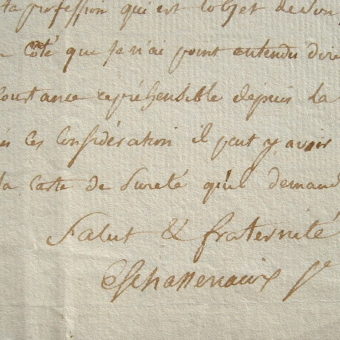 ta profession qui est l'objet de son
côté que je n'ai point entendu dire
Constance repréhensible depuis la
ces Considération il peut y avoir
la carte de Sureté qu'il demand
Salut & fraternité